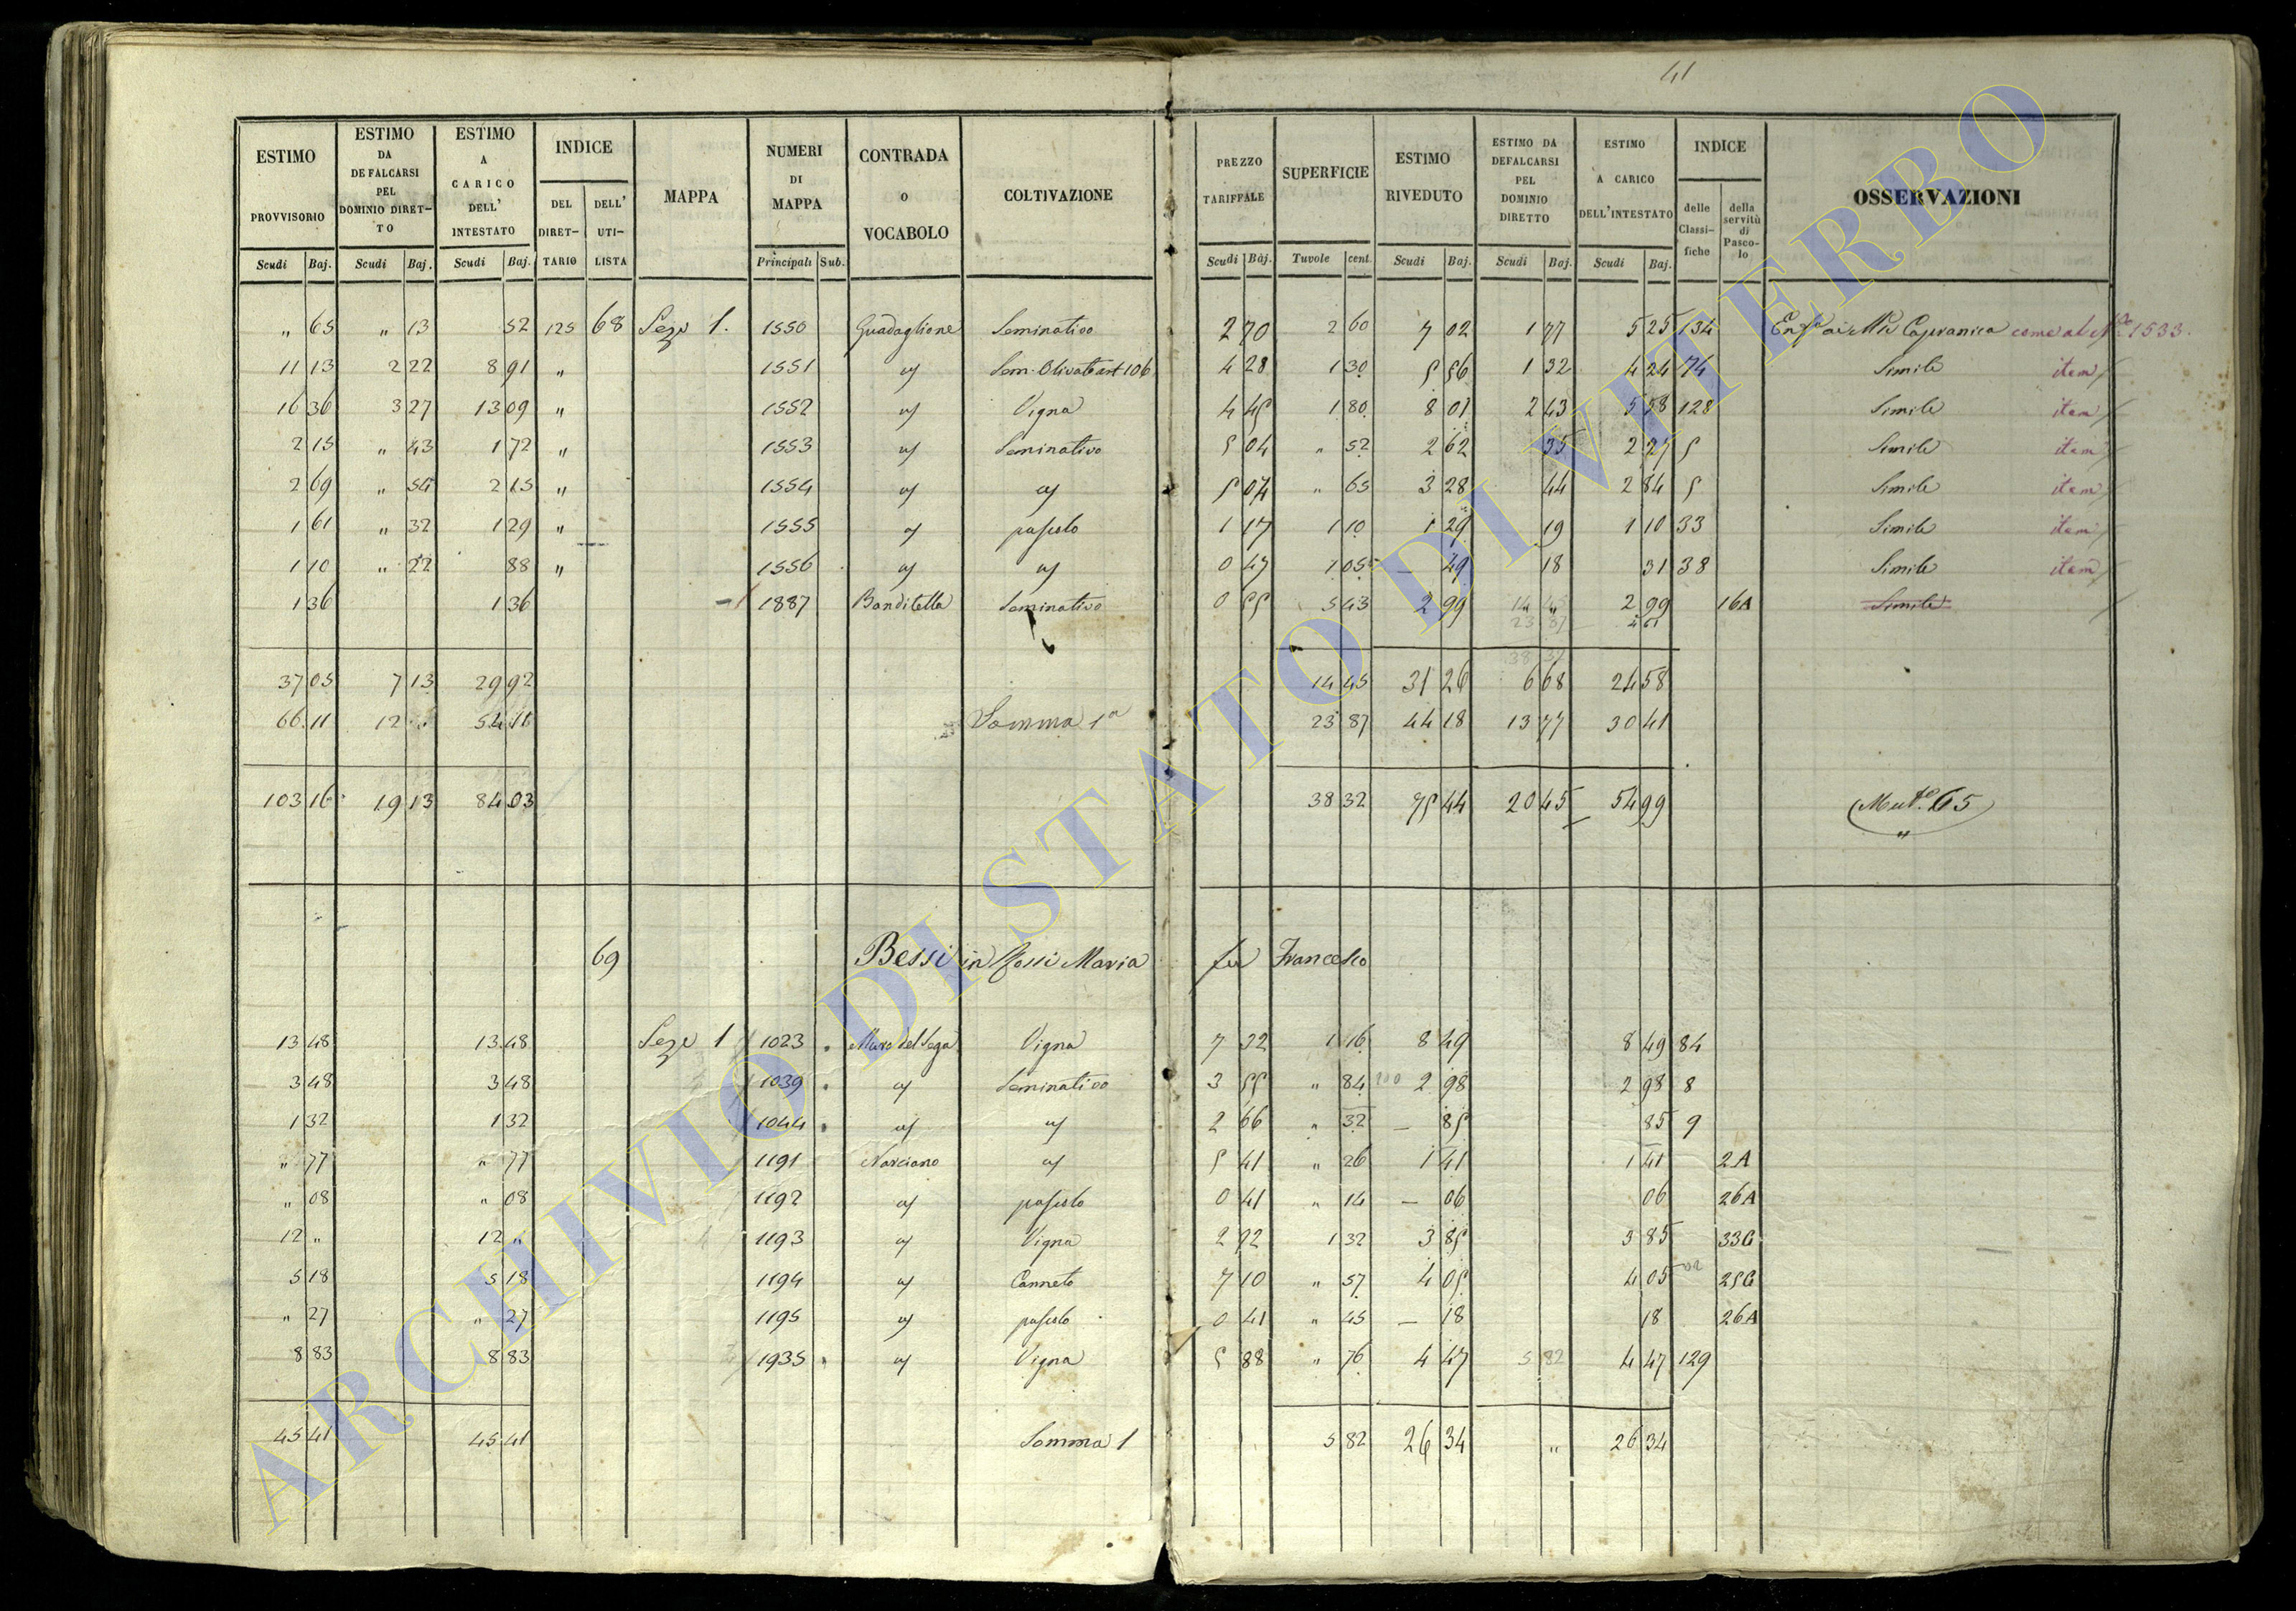 41
ESTIMO PROVVISORIO | ESTIMO DA DEFALCARSI PEL DOMINIO DIRET-TO | ESTIMO A CARICO DELL' INTESTATO | INDICE | MAPPA | NUMERI DI MAPPA | CONTRADA o VOCABOLO | COLTIVAZIONE | PREZZO TARIFFALE | SUPERFICIE | ESTIMO RIVEDUTO | ESTIMO DA DEFALCARSI PEL DOMINIO DIRETTO | ESTIMO A CARICO DELL'INTESTATO | INDICE | OSSERVAZIONI
Scudi Baj. | Scudi Baj. | Scudi Baj. | DEL DIRET-TARIO | DELL' UTI-LISTA | Principali Sub. | Scudi Baj. | Tavole cent. | Scudi Baj. | Scudi Baj. | Scudi Baj. | delle Classi-fiche | della servitù di Pasco-lo
" 65 " 13 52 125 68 Seze 1. 1550 Guadaglione Seminativo 2 70 2 60 7 02 1 77 5 25 134 Capranica come al N. 1533.
11 13 2 22 8 91 " 1551 Sem. Olivato art 106 4 28 1 30 5 56 1 32 4 24 74 Simile item
16 36 3 27 13 09 " 1552 Vigna 4 45 1 80 8 01 2 43 5 58 128 Simile item
2 15 " 43 1 72 " 1553 Seminativo 5 04 " 52 2 62 35 2 27 5 Simile item
2 69 " 54 2 15 " 1554 5 04 " 65 3 28 44 2 84 5 Simile item
1 61 " 32 1 29 " 1555 pascolo 1 17 1 10 1 29 19 1 10 33 Simile item
1 10 " 22 88 " 1556 0 47 1 05 — 49 18 31 38 Simile item
1 36 1 36 1887 Banditella Seminativo 0 55 5 43 2 99 " 2 99 16A Simile
37 05 7 13 29 92 14 45 31 26 6 68 24 58
66 11 12 " 54 11 Somma 1a 23 87 44 18 13 77 30 41
103 16 19 13 84 03 38 32 75 44 20 45 54 99 Mut.e 65
69 Bessi in Rossi Maria fu Francesco
13 48 13 48 Seze 1 1023 Vigna 7 32 1 16 8 49 8 49 84
3 48 3 48 1039 Seminativo 3 55 " 84 2 98 2 98 8
1 32 1 32 1044 2 66 " 32 — 85 85 9
" 77 " 77 1191 Narciano 5 41 " 26 1 41 1 41 2A
" 08 " 08 1192 pascolo 0 41 " 14 — 06 06 26A
12 " 12 " 1193 Vigna 2 92 1 32 3 85 3 85 33G
5 18 5 18 1194 Canneto 7 10 " 57 4 05 4 05 25G
" 27 " 27 1195 pascolo 0 41 " 45 — 18 18 26A
8 83 8 83 1935 Vigna 5 88 " 76 4 47 5 82 4 47 129
45 41 45 41 Somma 1 5 82 26 34 " 26 34
ARCHIVIO DI STATO DI VITERBO